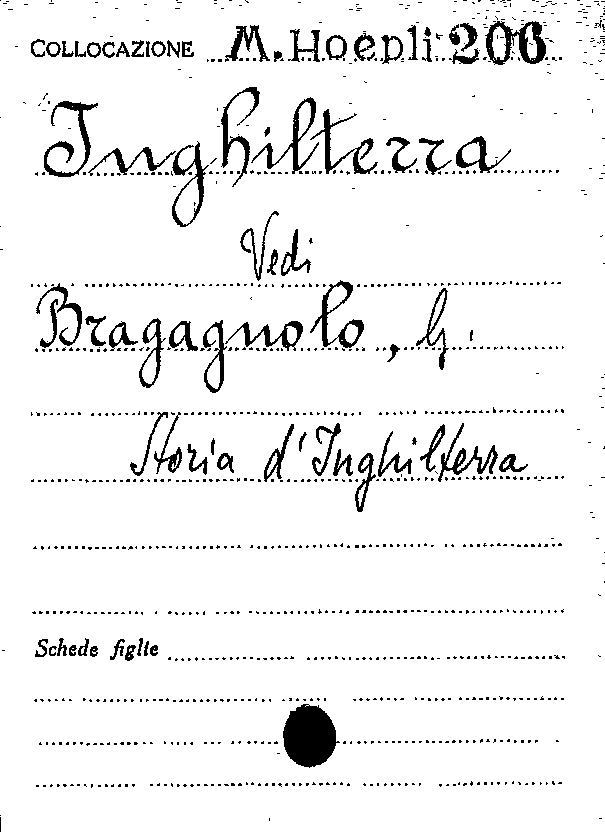 COLLOCAZIONE M. Hoepli 206
Inghilterra
Vedi
Bragagnolo, G.
Storia d'Inghilterra
Schede figlie